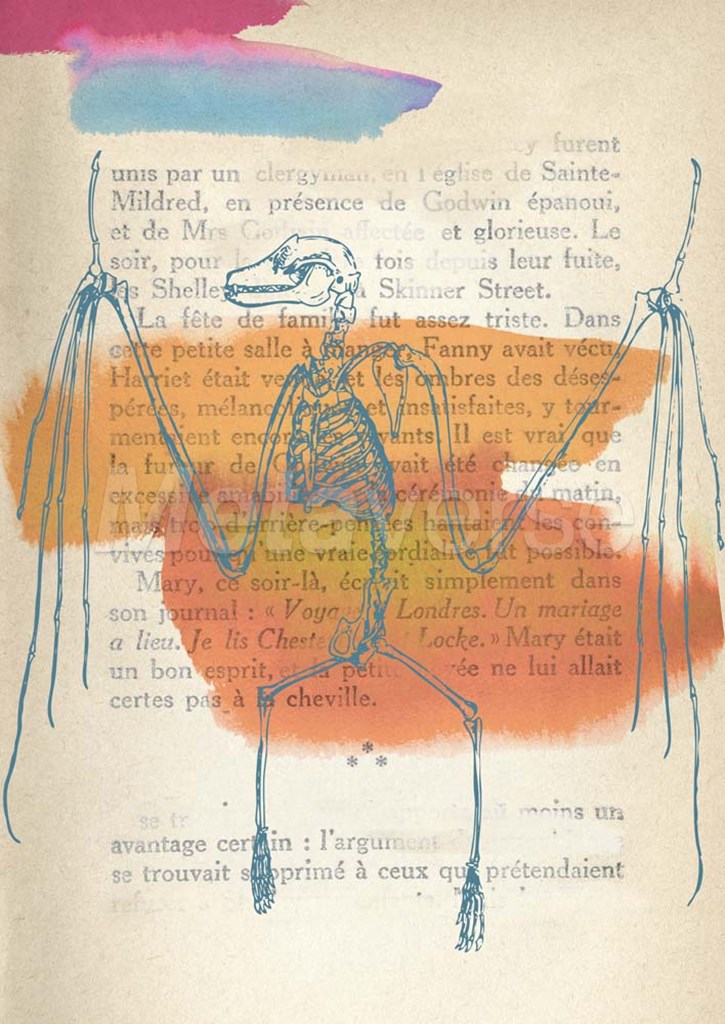 furent
unis par un clergyman, en l'église de Sainte-
Mildred, en présence de Godwin épanoui,
et de Mrs Godwin affectée et glorieuse. Le
soir, pour la fois depuis leur fuite,
les Shelley Skinner Street.
La fête de famille fut assez triste. Dans
cette petite salle à manger Fanny avait vécu,
Harriet était et les ombres des déses-
pérées, mélancoliques et insatisfaites, y tour-
mentaient encore vivants. Il est vrai que
la fureur de avait été changée en
excessive amabilité cérémonie du matin,
mais trop d'arrière-pensées hantaient les con-
vives pour qu'une vraie cordialité fût possible.
Mary, ce soir-là, écrivit simplement dans
son journal : « Voyage Londres. Un mariage
a lieu. Je lis Locke. » Mary était
un bon esprit, et la petite ne lui allait
certes pas à la cheville.
***
se moins un
avantage certain : l'argument
se trouvait supprimé à ceux qui prétendaient
Metaverse